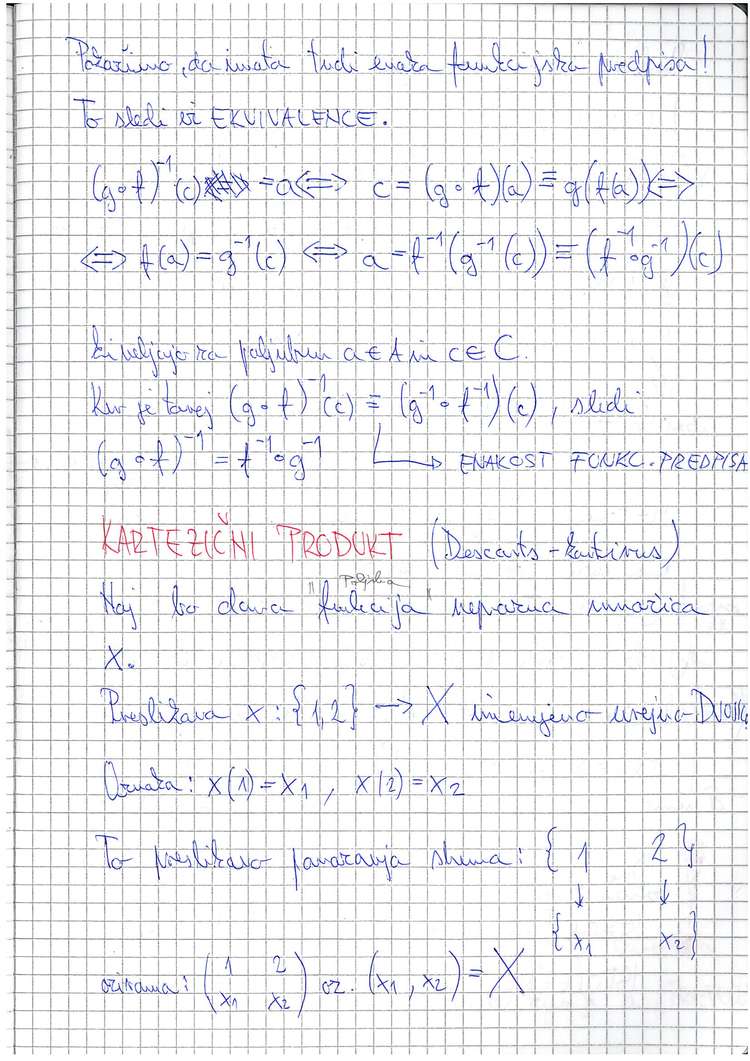 Pokažimo, da imata tudi enaka funkcijska predpisa!
To sledi iz EKVIVALENCE.
(g∘f)⁻¹(c) = a ⇔ c = (g∘f)(a) ≡ g(f(a)) ⇔
⇔ f(a) = g⁻¹(c) ⇔ a = f⁻¹(g⁻¹(c)) ≡ (f⁻¹∘g⁻¹)(c)
ki veljajo za poljuben a ∈ A in c ∈ C.
Ker je torej (g∘f)⁻¹(c) ≡ (g⁻¹∘f⁻¹)(c), sledi
(g∘f)⁻¹ = f⁻¹∘g⁻¹ ↳ ENAKOST FUNKC. PREDPISA
KARTEZIČNI PRODUKT (Descarts -
Poljubna
Naj bo dana "funkcija" neprazna množica
X.
Preslikava x: {1,2} → X imenujemo urejeno
Oznaka: x(1) = x₁, x(2) = x₂
To preslikavo ponazarja shema: { 1 2 }
↓ ↓
{ x₁ x₂ }
oziroma: (1 2
x₁ x₂) oz. (x₁, x₂) = X